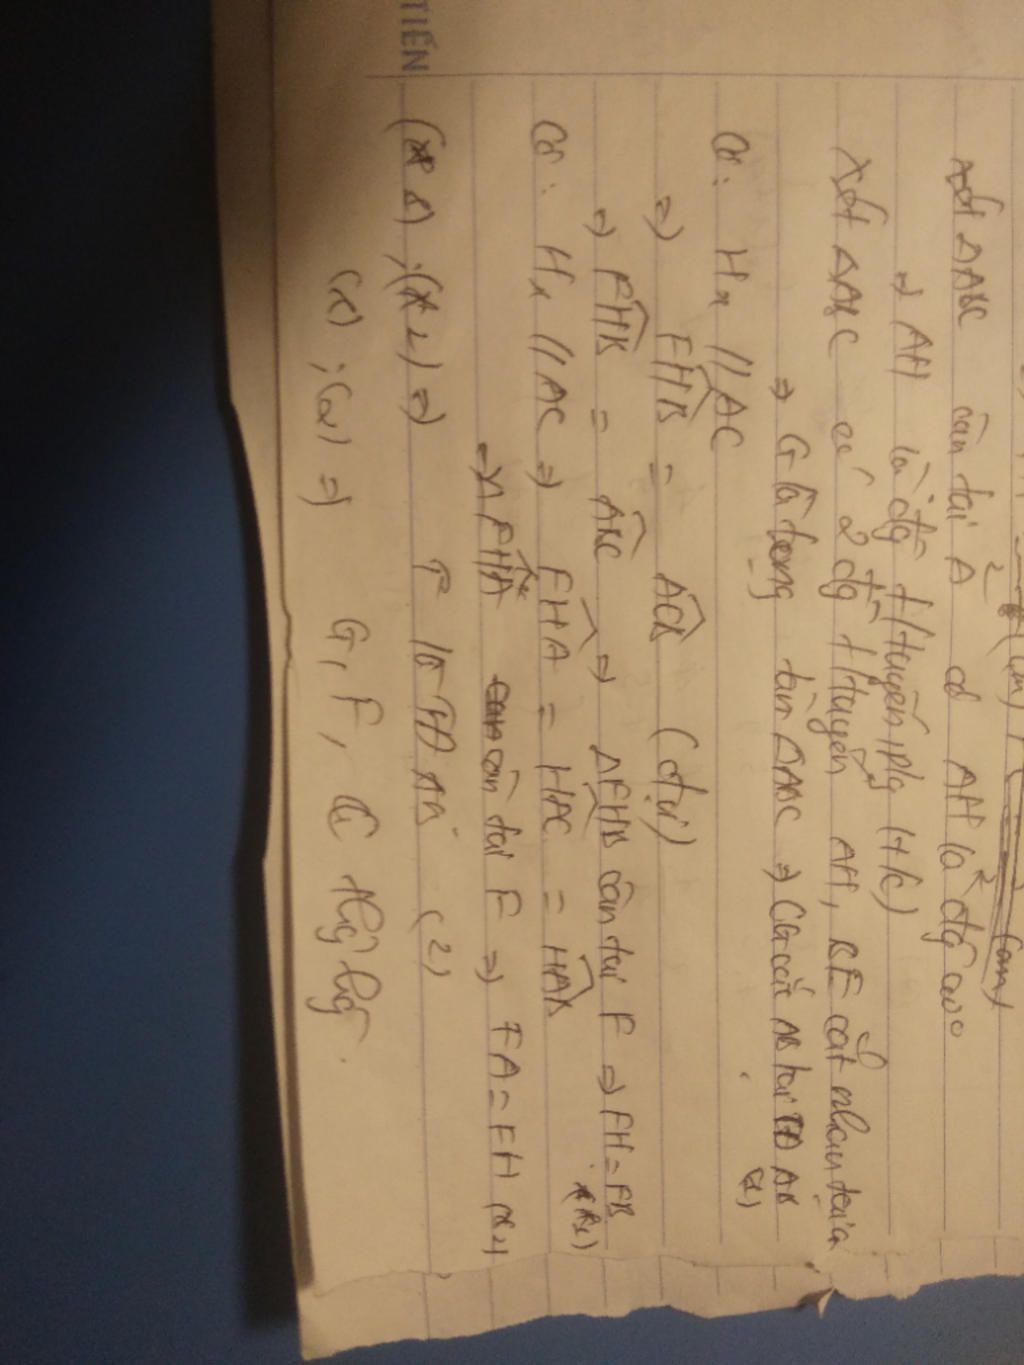 TIẾN
xét ΔABC cân tại A có AH là đg cao
⇒ AH là đg t/tuyến, p/g (t/c)
Xét ΔABC có 2 đg t/tuyến AH, BE cắt nhau tại G
⇒ G là trọng tâm ΔABC ⇒ CG cắt AB tại TĐ AB (1)
Có: Hx // AC
⇒ FHB = ACB (đvị)
⇒ FHB = ABC ⇒ ΔFHB cân tại F ⇒ FH = FB (*1)
Có: Hx // AC ⇒ FHA = HAC = HAB
⇒ FHA cân tại F ⇒ FA = FH (*2)
(*1); (*2) ⇒ F là TĐ AB (2)
(1); (2) ⇒ G, F, C thg hg.